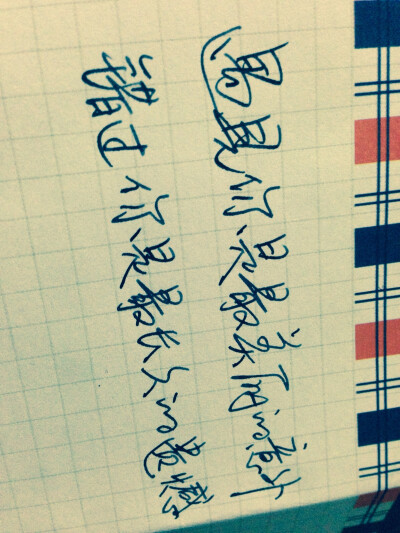 遇见你是最美丽的意外
错过你是最长久的遗憾